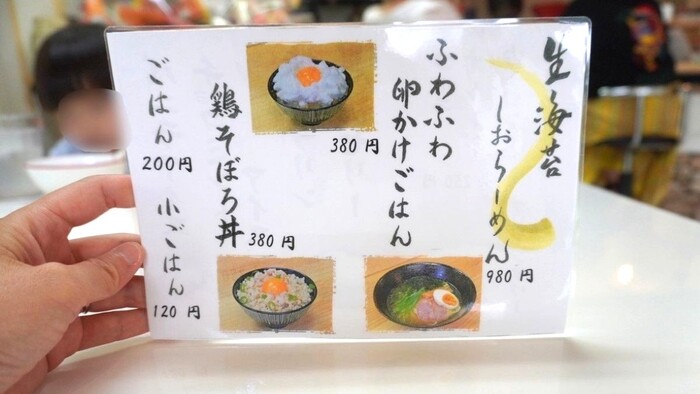 生海苔
しおらーめん
980 円
ふわふわ
卵かけごはん
380 円
鶏そぼろ丼
380 円
ごはん
200円
小ごはん
120 円